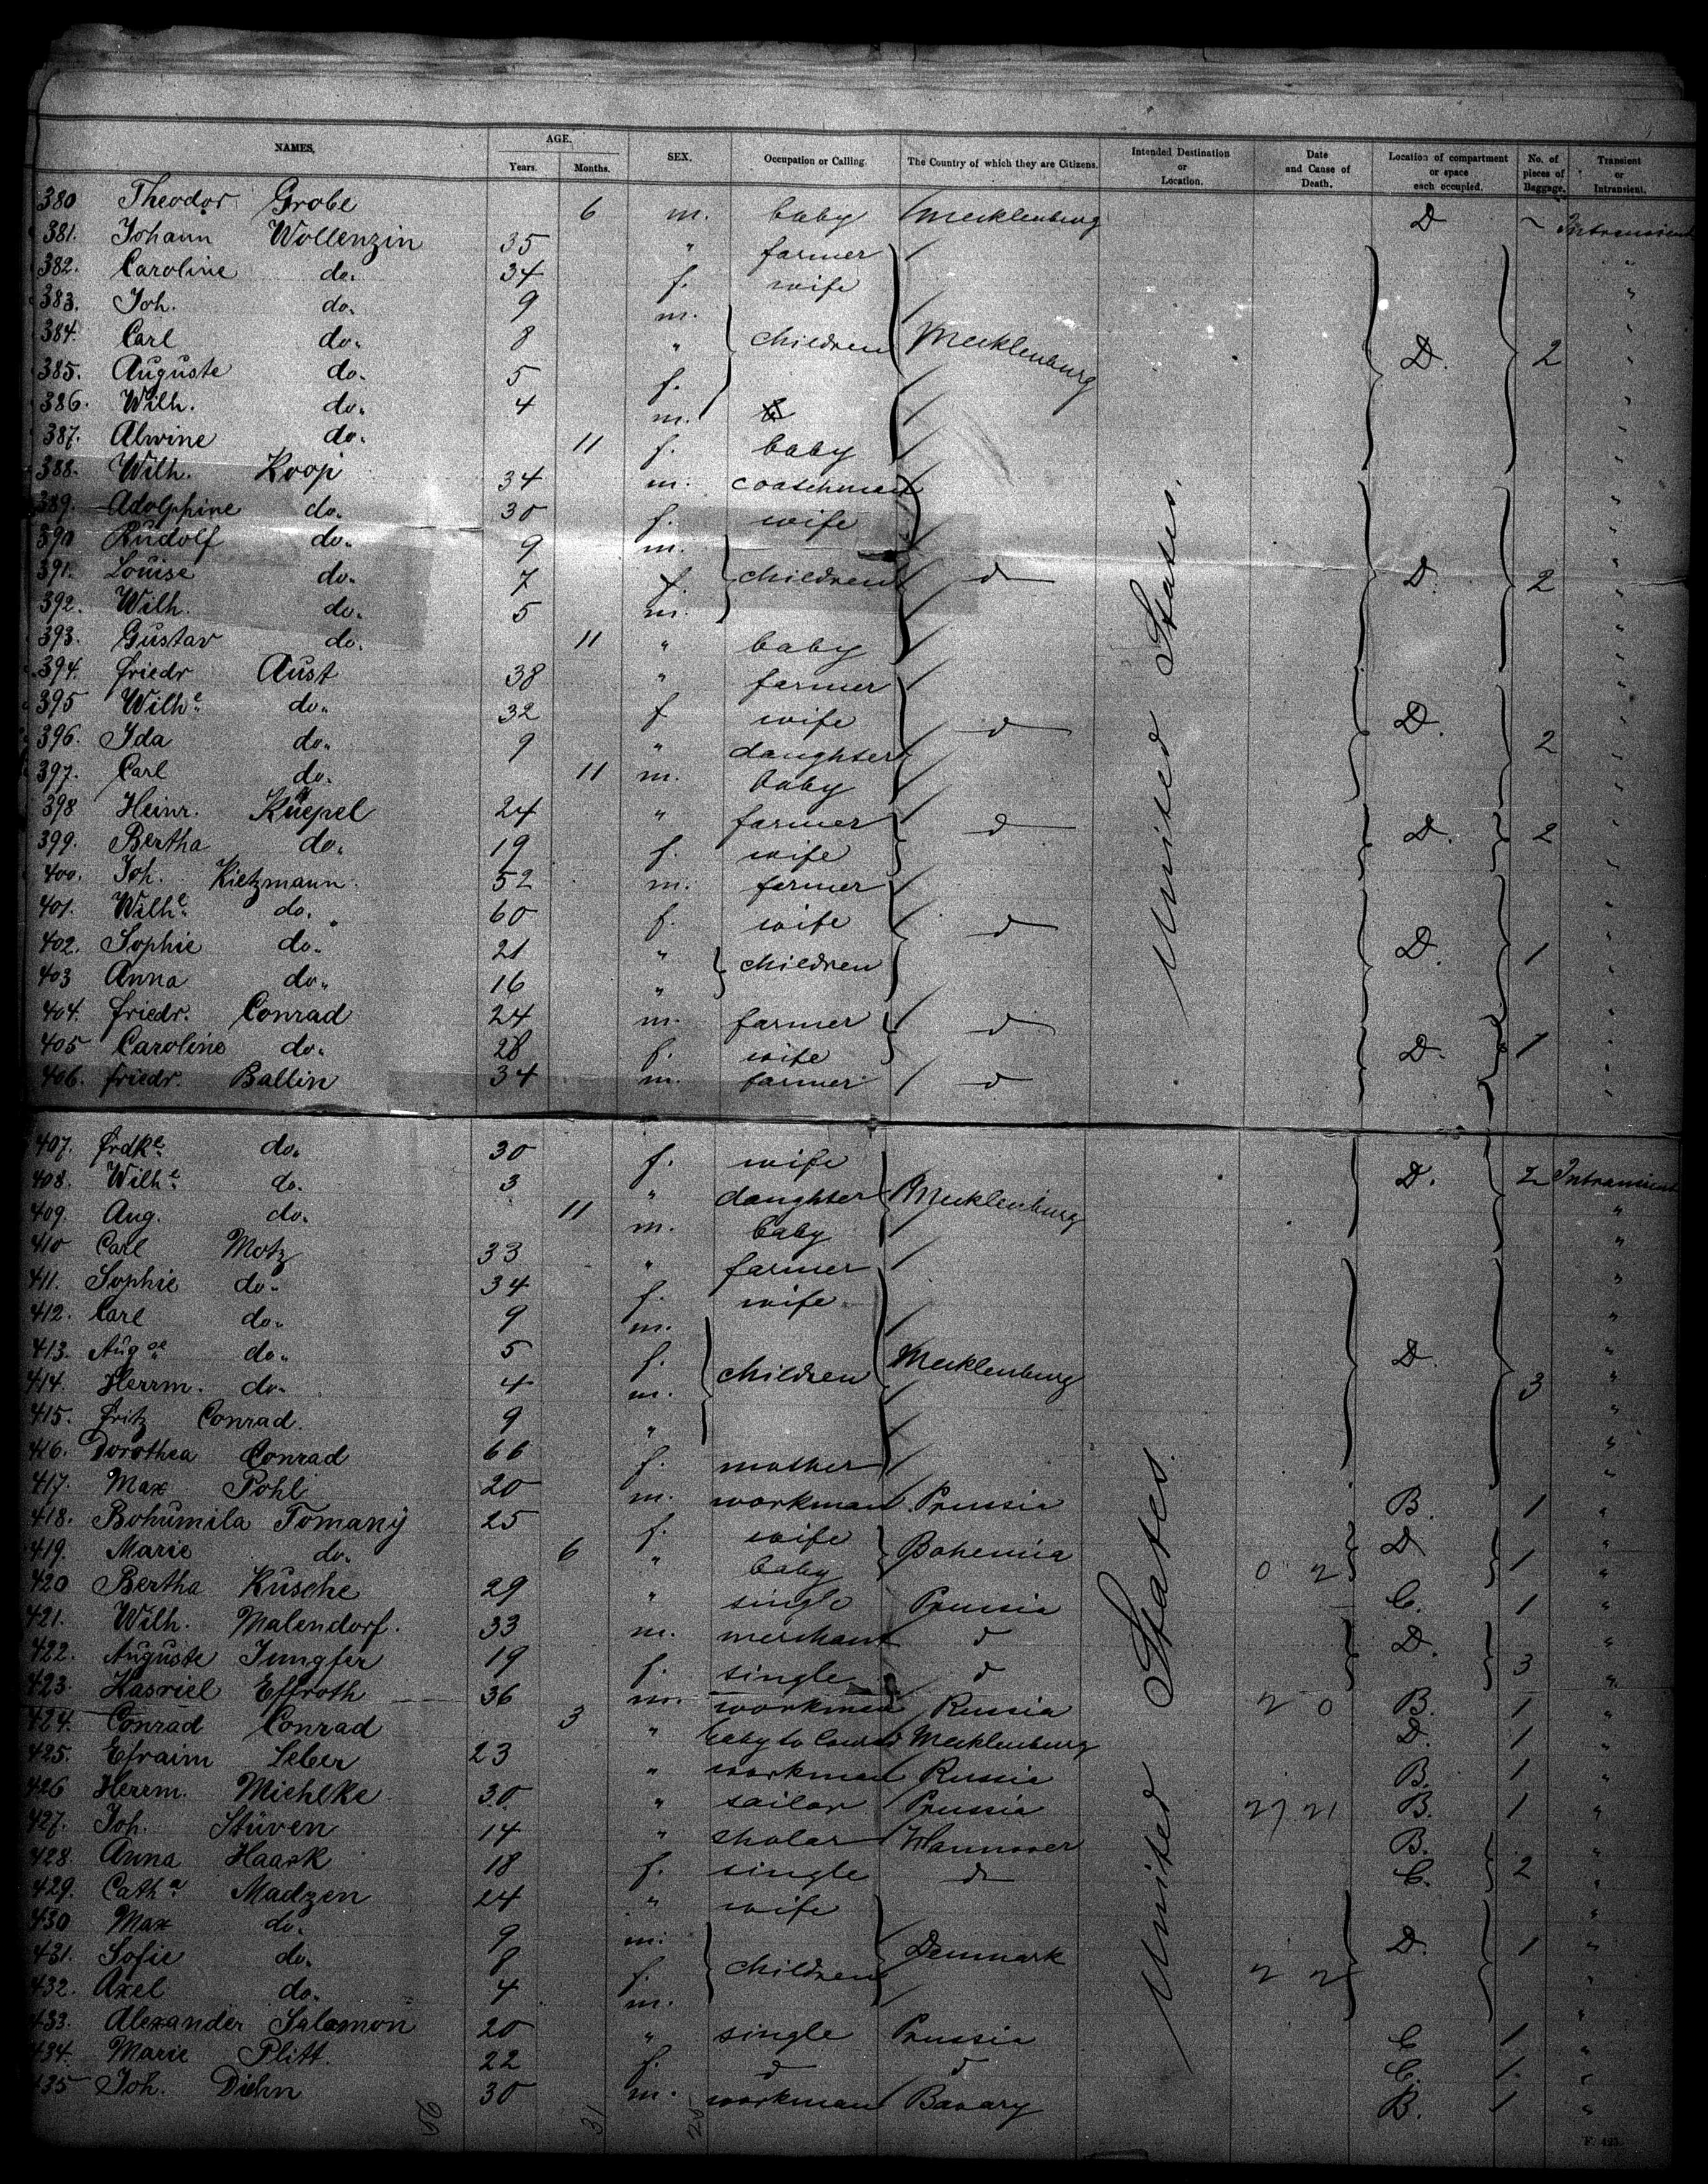 NAMES. AGE. SEX. Occupation or Calling. The Country of which they are Citizens. Intended Destination or Location. Date and Cause of Death. Location of compartment or space each occupied. No. of pieces of Baggage. Transient or Intransient.
Years. Months.
380 Theodor Grobe 6 m. baby Mecklenburg D ~ Intransient
381. Johann Wollenzin 35 " farmer "
382. Caroline do. 34 f. wife "
383. Joh. do. 9 m. "
384. Carl do. 8 " children Mecklenburg D. 2 "
385. Auguste do. 5 f. "
386. Wilh. do. 4 m. "
387. Alwine do. 11 f. baby "
388. Wilh. Koop 34 m. coatchman "
389. Adolphine do. 30 f. wife "
390 Rudolf do. 9 m. "
391. Louise do. 7 f. children d D. 2 "
392. Wilh. do. 5 m. "
393. Gustav do. 11 " baby "
394. Friedr Aust 38 " farmer "
395 Wilhe. do. 32 f wife d D. "
396. Ida do. 9 " daughter 2 "
397. Carl do. 11 m. baby "
398 Heinr. Kuepel 24 " farmer d D. 2 "
399. Bertha do. 19 f. wife "
400. Joh. Kietzmann. 52 m. farmer "
401. Wilhe. do. 60 f. wife d "
402. Sophie do. 21 " children D. 1 "
403 Anna do. 16 " "
404. Friedr. Conrad 24 m. farmer d "
405 Caroline do. 28 f. wife D. 1 "
406. Friedr. Ballin 34 m. farmer d "
United States.
407. Frdke. do. 30 f. wife D. 2 Intransient
408. Wilhe. do. 3 " daughter Mecklenburg "
409. Aug. do. 11 m. baby "
410 Carl Motz 33 " farmer "
411. Sophie do. 34 f. wife "
412. Carl do. 9 m. "
413. Augte. do. 5 f. children Mecklenburg D. "
414. Herrm. do. 4 m. 3 "
415. Fritz Conrad. 9 " "
416. Dorothea Conrad 66 f. mother "
417. Max Pohl 20 m. workman Prussia B. 1 "
418. Bohumila Tomany 25 f. wife Bohemia D. "
419. Marie do. 6 " baby 0 2 1 "
420 Bertha Kusche 29 " single Prussia C. 1 "
421. Wilh. Malendorf. 33 m. merchant d D. "
422. Auguste Jungfer 19 f. single d 3 "
423. Hasriel Effroth 36 m. workman Russia 2 0 B. 1 "
424. Conrad Conrad 3 " baby to Mecklenburg D. 1 "
425. Efraim Leber 23 " workman Russia B. 1 "
426 Herrm. Michlke 30. " sailor Prussia 27 21 B. 1 "
427. Joh. Stüven 14 " scholar Hannover B. "
428. Anna Haack 18 f. single d C. 2 "
429. Catha. Madzen 24 " wife "
430 Max do. 9 m. Denmark D. 1 "
431. Sofie do. 8 f. children 2 2 "
432. Axel do. 4 m. "
433. Alexander Salomon 20 " single Prussia C 1 "
434. Marie Plitt. 22 f. d d C. 1. "
435 Joh. Diehn 30 m. workman Bavary B. 1 "
United States.
56 31 25